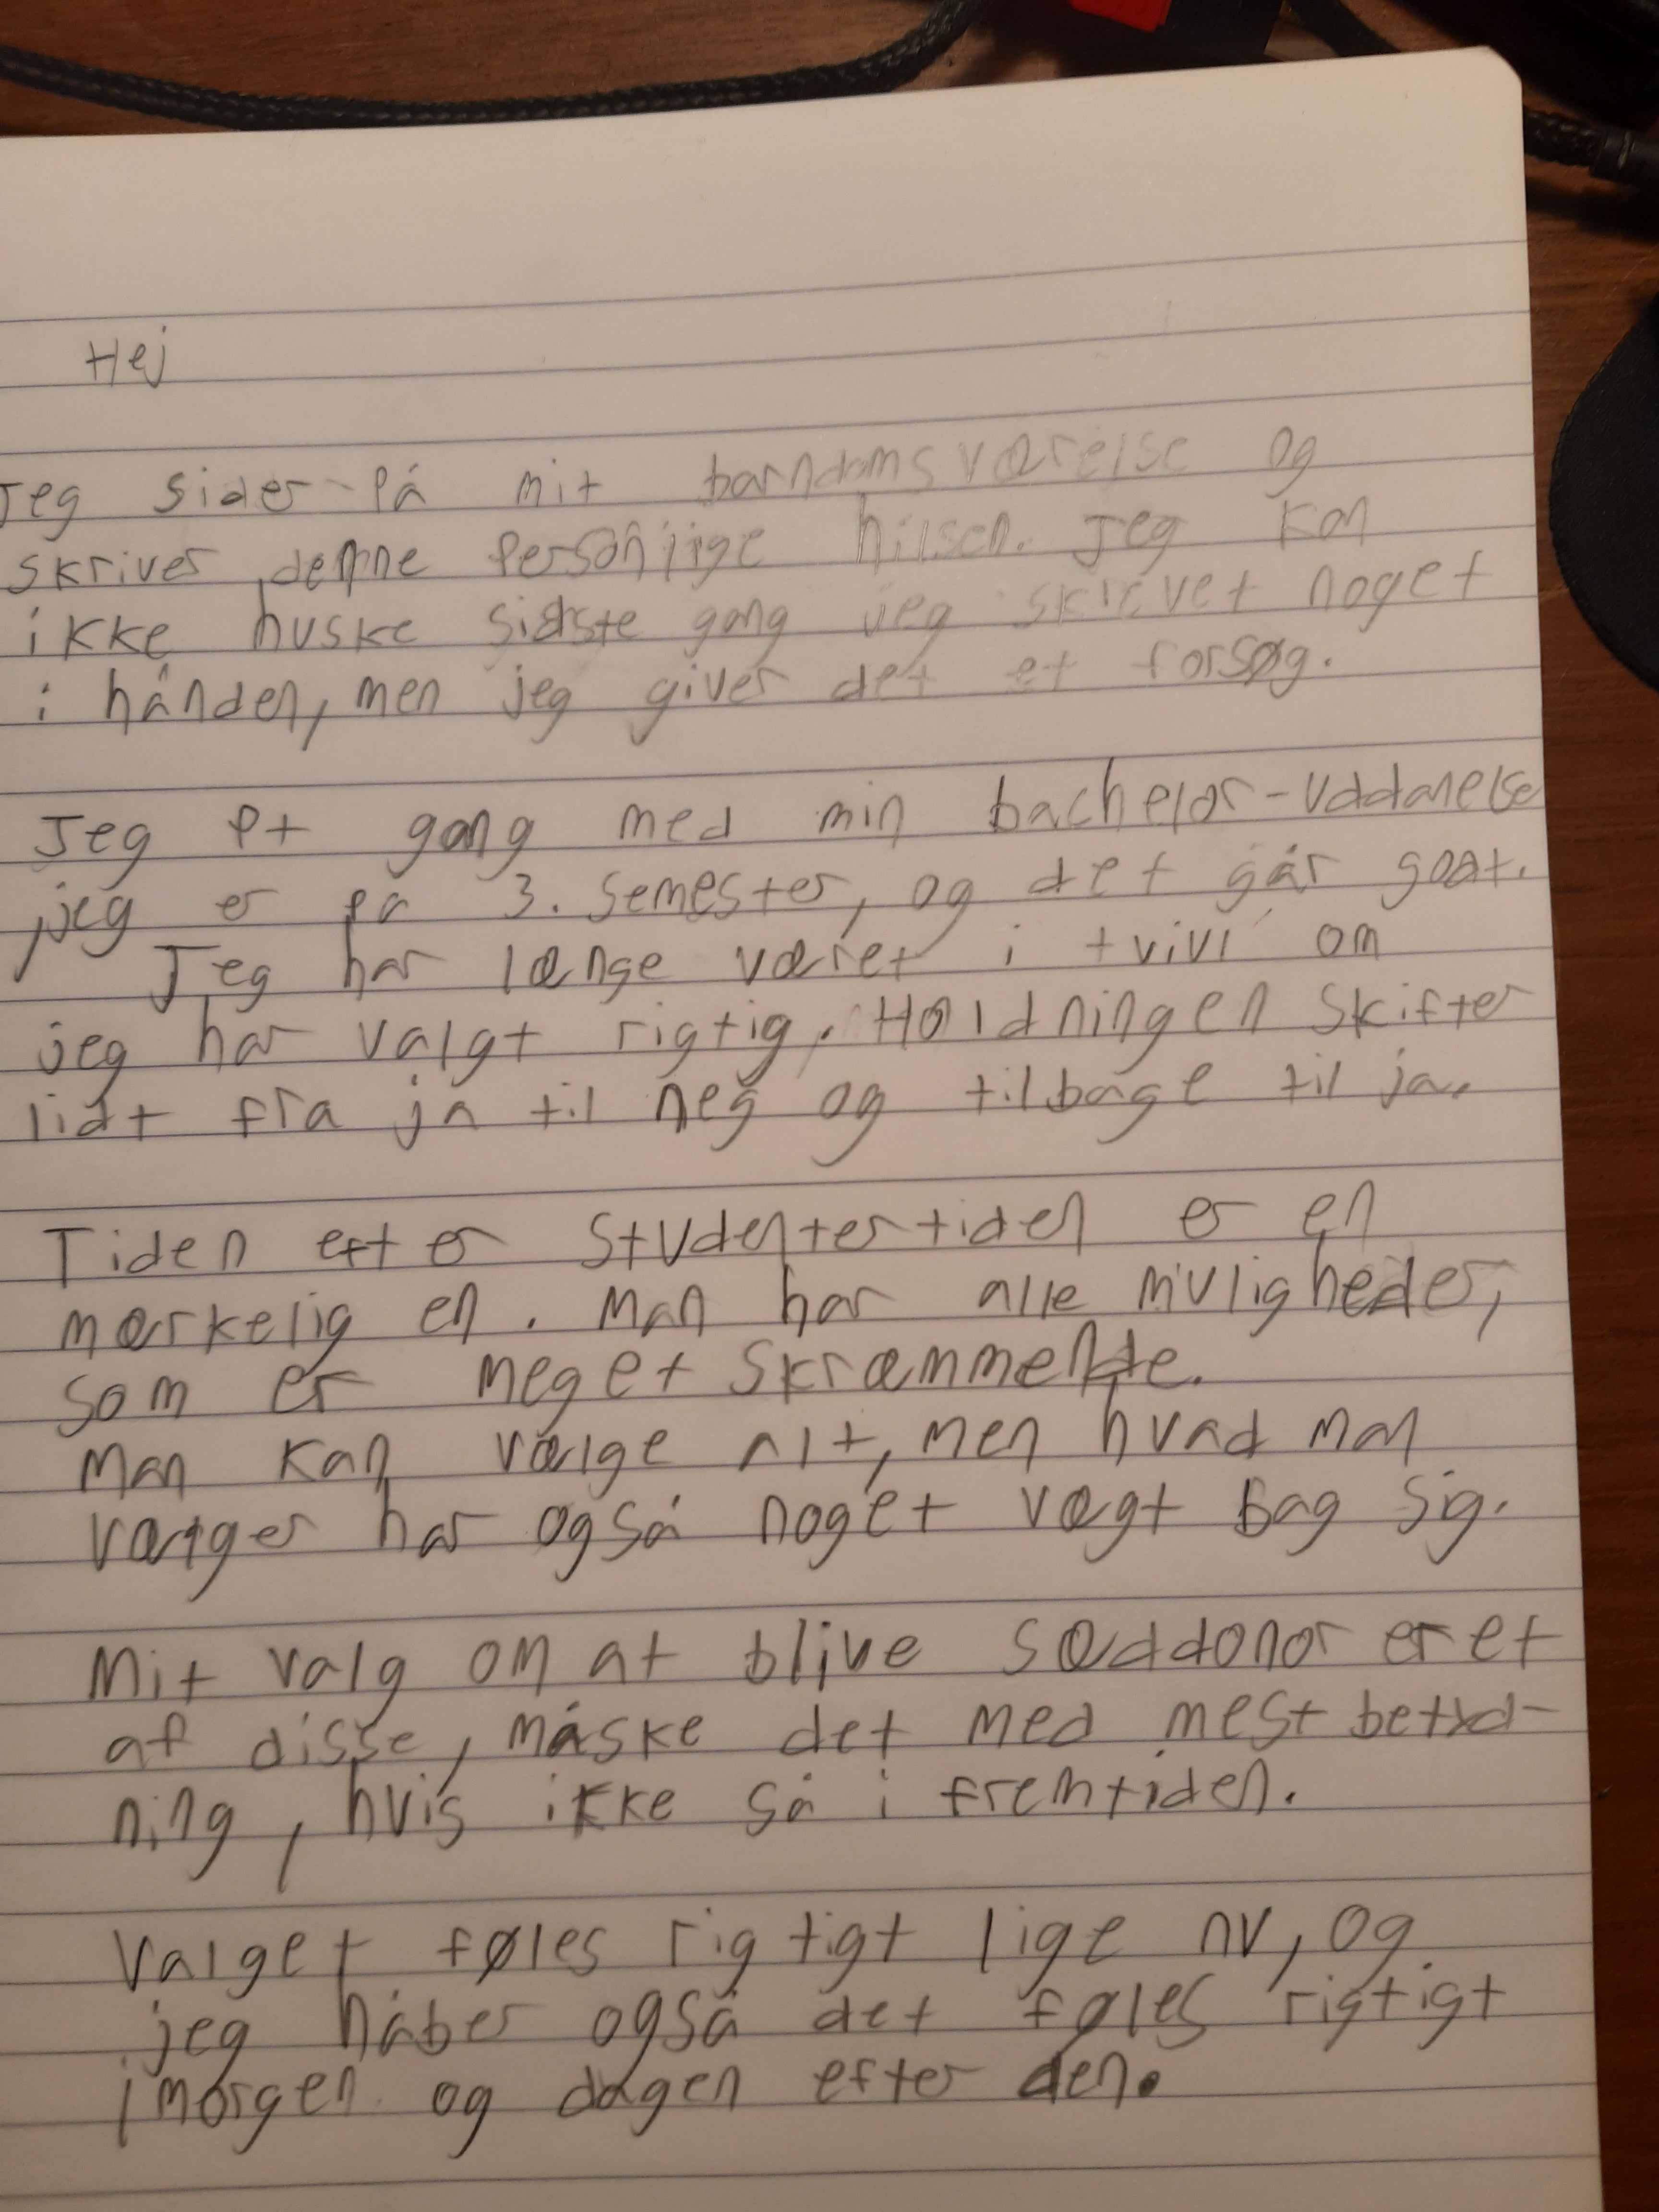 Hej
Jeg sider på mit barndomsværelse og
skriver denne personlige hilsen. Jeg kan
ikke huske sidste gang jeg skrevet noget
i hånden, men jeg giver det et forsøg.
Jeg pt gang med min bachelor-uddanelse
jeg er på 3. semester, og det går godt.
Jeg har længe været i tvivl om
jeg har valgt rigtig. Holdningen skifter
lidt fra ja til nej og tilbage til ja.
Tiden efter studentertiden er en
mærkelig en. Man har alle muligheder,
som er meget skræmmende.
Man kan vælge alt, men hvad man
vælger har også noget vægt bag sig.
Mit valg om at blive sæddonor er et
af disse, måske det med mest betyd-
ning, hvis ikke så i fremtiden.
Valget føles rigtigt lige nu, og
jeg håber også det føles rigtigt
imorgen og dagen efter den.